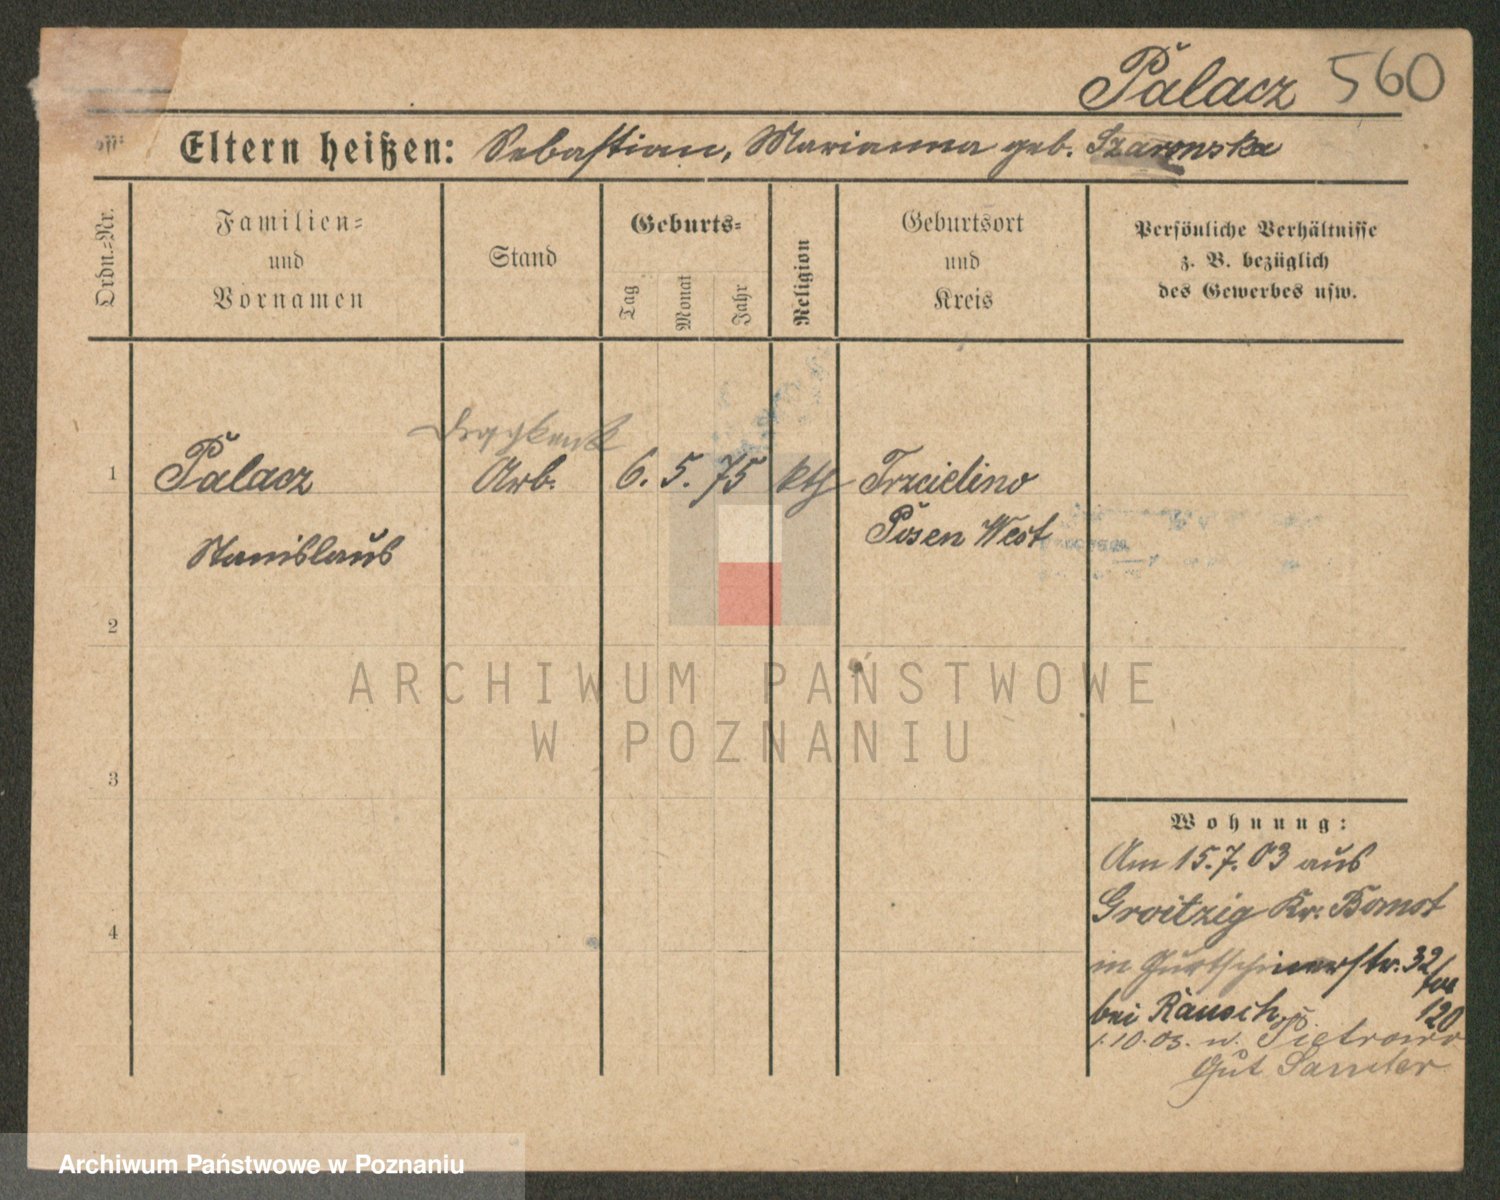 Palacz 560
Eltern heißen: Sebastian, Marianna geb. Szaronska
Ordn.=Nr.
Familien=
und
Vornamen
Stand
Geburts=
Tag
Monat
Jahr
Religion
Geburtsort
und
Kreis
Persönliche Verhältnisse
z. B. bezüglich
des Gewerbes usw.
1 Palacz Arb. 6. 5. 75 kth Trzcielino
Stanislaus Posen West
2
ARCHIWUM PAŃSTWOWE
W POZNANIU
3
Wohnung:
Am 15.7.03 aus
Groitzig Kr. Bomst
4
in Gurtschinerstr. 32
bei Rausch 120
1.10.03. n. Pietrowo
Gut Samter
Archiwum Państwowe w Poznaniu